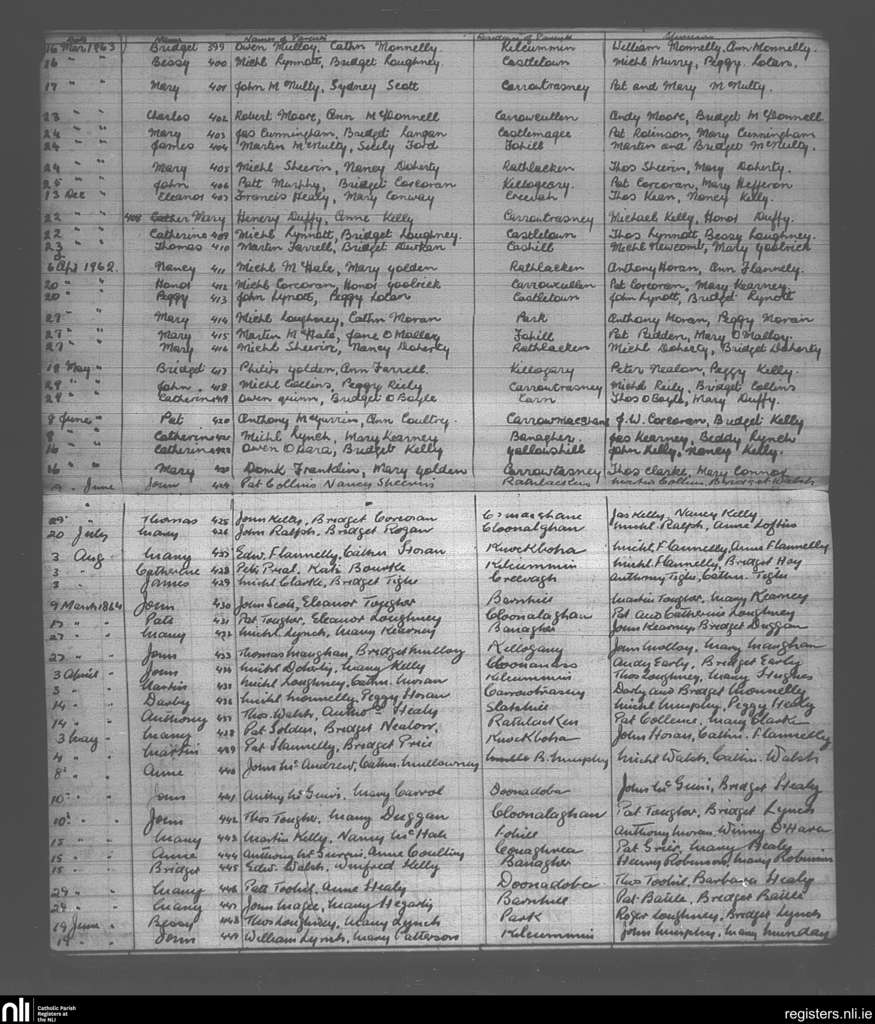 Date Name Names of Parents Residence of Parents Sponsors
16 Mar 1863 Bridget 399 Owen Mulloy, Cathn Monnelly. Kilcummin William Monnelly, Ann Monnelly.
16 " " Bessy 400 Michl Lynnott, Bridget Loughney. Castletown Michl Murry, Peggy Lolan.
17 " " Mary 401 John McNulty, Sydney Scott Carrowtrasney Pat and Mary McNulty.
23 " " Charles 402 Robert Moore, Ann McDonnell Carrowcullen Andy Moore, Bridget McDonnell
24 " " Mary 403 Jas Cunningham, Bridget Langan Castlemagee Pat Robinson, Mary Cunningham
24 " " James 404 Martin McNulty, Seily Ford Fohill Martin and Bridget McNulty.
24 " " Mary 405 Michl Sheerin, Nancy Doherty Rathlacken Thos Sheerin, Mary Doherty.
25 " " John 406 Patt Murphy, Bridget Corcoran Killogeary. Pat Corcoran, Mary Hefferon
13 Dec " Eleanor 407 Francis Healy, Mary Conway Creevah Thos Kean, Nancy Kelly.
22 " " 408 Mary Henery Duffy, Anne Kelly Carrowtrasney Michael Kelly, Honor Duffy.
22 " " Catherine 409 Michl Lynnott, Bridget Loughney. Castletown Thos Lynnott, Bessy Loughney.
23 " " Thomas 410 Martin Farrell, Bridget Durkan Cashill Michl Newcomb, Mary Goolrick
6 Apl 1862. Nancy 411 Michl McHale, Mary Golden Rathlacken Anthony Horan, Ann Flannelly.
20 " " Honor 412 Michl Corcoran, Honor Goolrick Carrowcullen Pat Corcoran, Mary Kearney.
20 " " Peggy 413 John Lynott, Peggy Lolan Castletown John Lynott, Bridget Lynott
27 " " Mary 414 Michl Loughney, Cathn Moran Park Anthony Moran, Peggy Moran
27 " " Mary 415 Martin McHale, Jane O Malley Fohill Pat Padden, Mary O Malley.
27 " " Mary 416 Michl Sheerin, Nancy Doherty Rathlacken Michl Doherty, Bridget Doherty
18 May " Bridget 417 Philip Golden, Ann Farrell. Killogary Peter Nealon, Peggy Kelly.
29 " " John 418 Michl Collins, Peggy Reily Carrowtrasney Michl Reily, Bridget Collins
29 " " Catherine 419 Owen Quinn, Bridget O Boyle Carn Thos O Boyle, Mary Duffy.
8 June " Pat 420 Anthony McGurrin, Ann Coultry. J.W. Corcoran, Bridget Kelly
8 " " Catherine 421 Michl Lynch, Mary Kearney Banagher. Jas Kearney, Beddy Lynch
16 " " Catherine 422 Owen O Hara, Bridget Kelly Gallowshill John Kelly, Nancy Kelly.
16 " " Mary Domk Franklin, Mary Golden Carrowtrasney Thos Clarke, Mary Connor
June John 424 Pat Collins Nancy Sheerin Rathlacken Martin Collins, Bridget Walsh
29 " " Thomas 425 John Kelly, Bridget Corcoran Jas Kelly, Nancy Kelly
20 July Mary 426 John Ralph, Bridget Rogan Cloonalaghan Michl Ralph, Anne Loftus
3 Aug " Mary 427 Edw. Flannelly, Cathn Horan Knockboha Michl Flannelly, Anne Flannelly
3 " Catherine 428 Kate Bourke Kilcummin Michl Flannelly, Bridget Hoy
3 " James 429 Michl Clarke, Bridget Tighe Creevagh Anthony Tighe, Cathn. Tighe
9 March 1864 John 430 John Scott, Eleanor Tougher Barnhill Martin Tougher, Mary Kearney
17 " " Patt 431 Pat Tougher, Eleanor Loughney Cloonalaghan Pat and Catherine Loughney
27 " " Mary 432 Michl Lynch, Mary Kearney Banagher John Kearney, Bridget Duggan
27 " " John 433 Thomas Maughan, Bridget Mulloy Killogary John Molloy, Mary Maughan
3 April " John 434 Michl Doherty, Mary Kelly Andy Early, Bridget Early
3 " " Martin 435 Michl Loughney, Cathn. Moran Kilcummin Thos Loughney, Mary Hughes
14 " " Darby 436 Michl Monnelly, Peggy Horan Carrowtrasney Darby and Bridget Monnelly
14 " " Anthony 437 Thos. Walsh, Healy Michl Murphy, Peggy Healy
3 May " Mary 438 Pat Golden, Bridget Nealon. Rathlacken Pat Collins, Mary Clarke
4 " " Martin 439 Pat Flannelly, Bridget Price Knockboha John Horan, Cathn. Flannelly
8 " " Anne 440 John McAndrew, Cathn. Mullowney Michl Walsh, Cathn. Walsh
10 " " John 441 Mary Carrol Doonadoba John McGuin, Bridget Healy
10 " " John 442 Thos Tougher, Mary Duggan Cloonalaghan Pat Tougher, Bridget Lynch
15 " " Mary 443 Martin Kelly, Nancy McHale Fohill Anthony Moran, Winny O'Hara
15 " " Anne 444 Anthony McGurrin, Anne Coulting Pat Greir, Mary Healy
15 " " Bridget 445 Edw. Walsh, Winifred Kelly Banagher Henry Robinson, Mary Robinson
29 " " Mary 446 Patt Toohil, Anne Healy Doonadoba Thos Toohil, Barbara Healy
29 " " Mary 447 John Magee, Mary Hegarty Barnhill Pat Battle, Bridget Battle
19 June " Bessy 448 Thos Loughney, Mary Lynch Park Roger Loughney, Bridget Lynch
19 " " John 449 William Lynch, Mary Patterson Kilcummin John Murphy, Mary Munday
nli Catholic Parish
Registers at
the NLI
registers.nli.ie